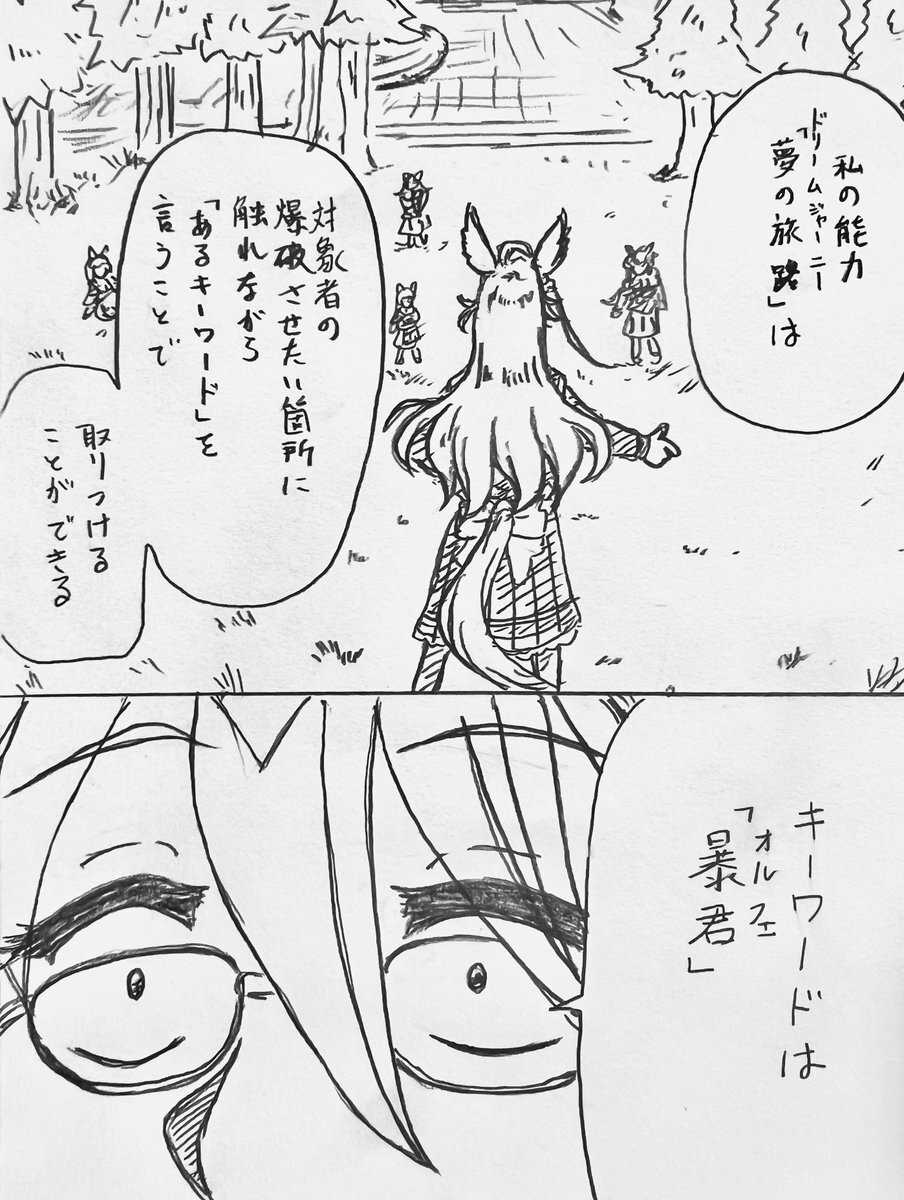 私の能力
ドリームジャーニー
「夢の旅路」は
対象者の
爆破させたい箇所に
触れながら
「あるキーワード」を
言うことで
取りつける
ことができる
キーワードは
オルフェ
「暴君」